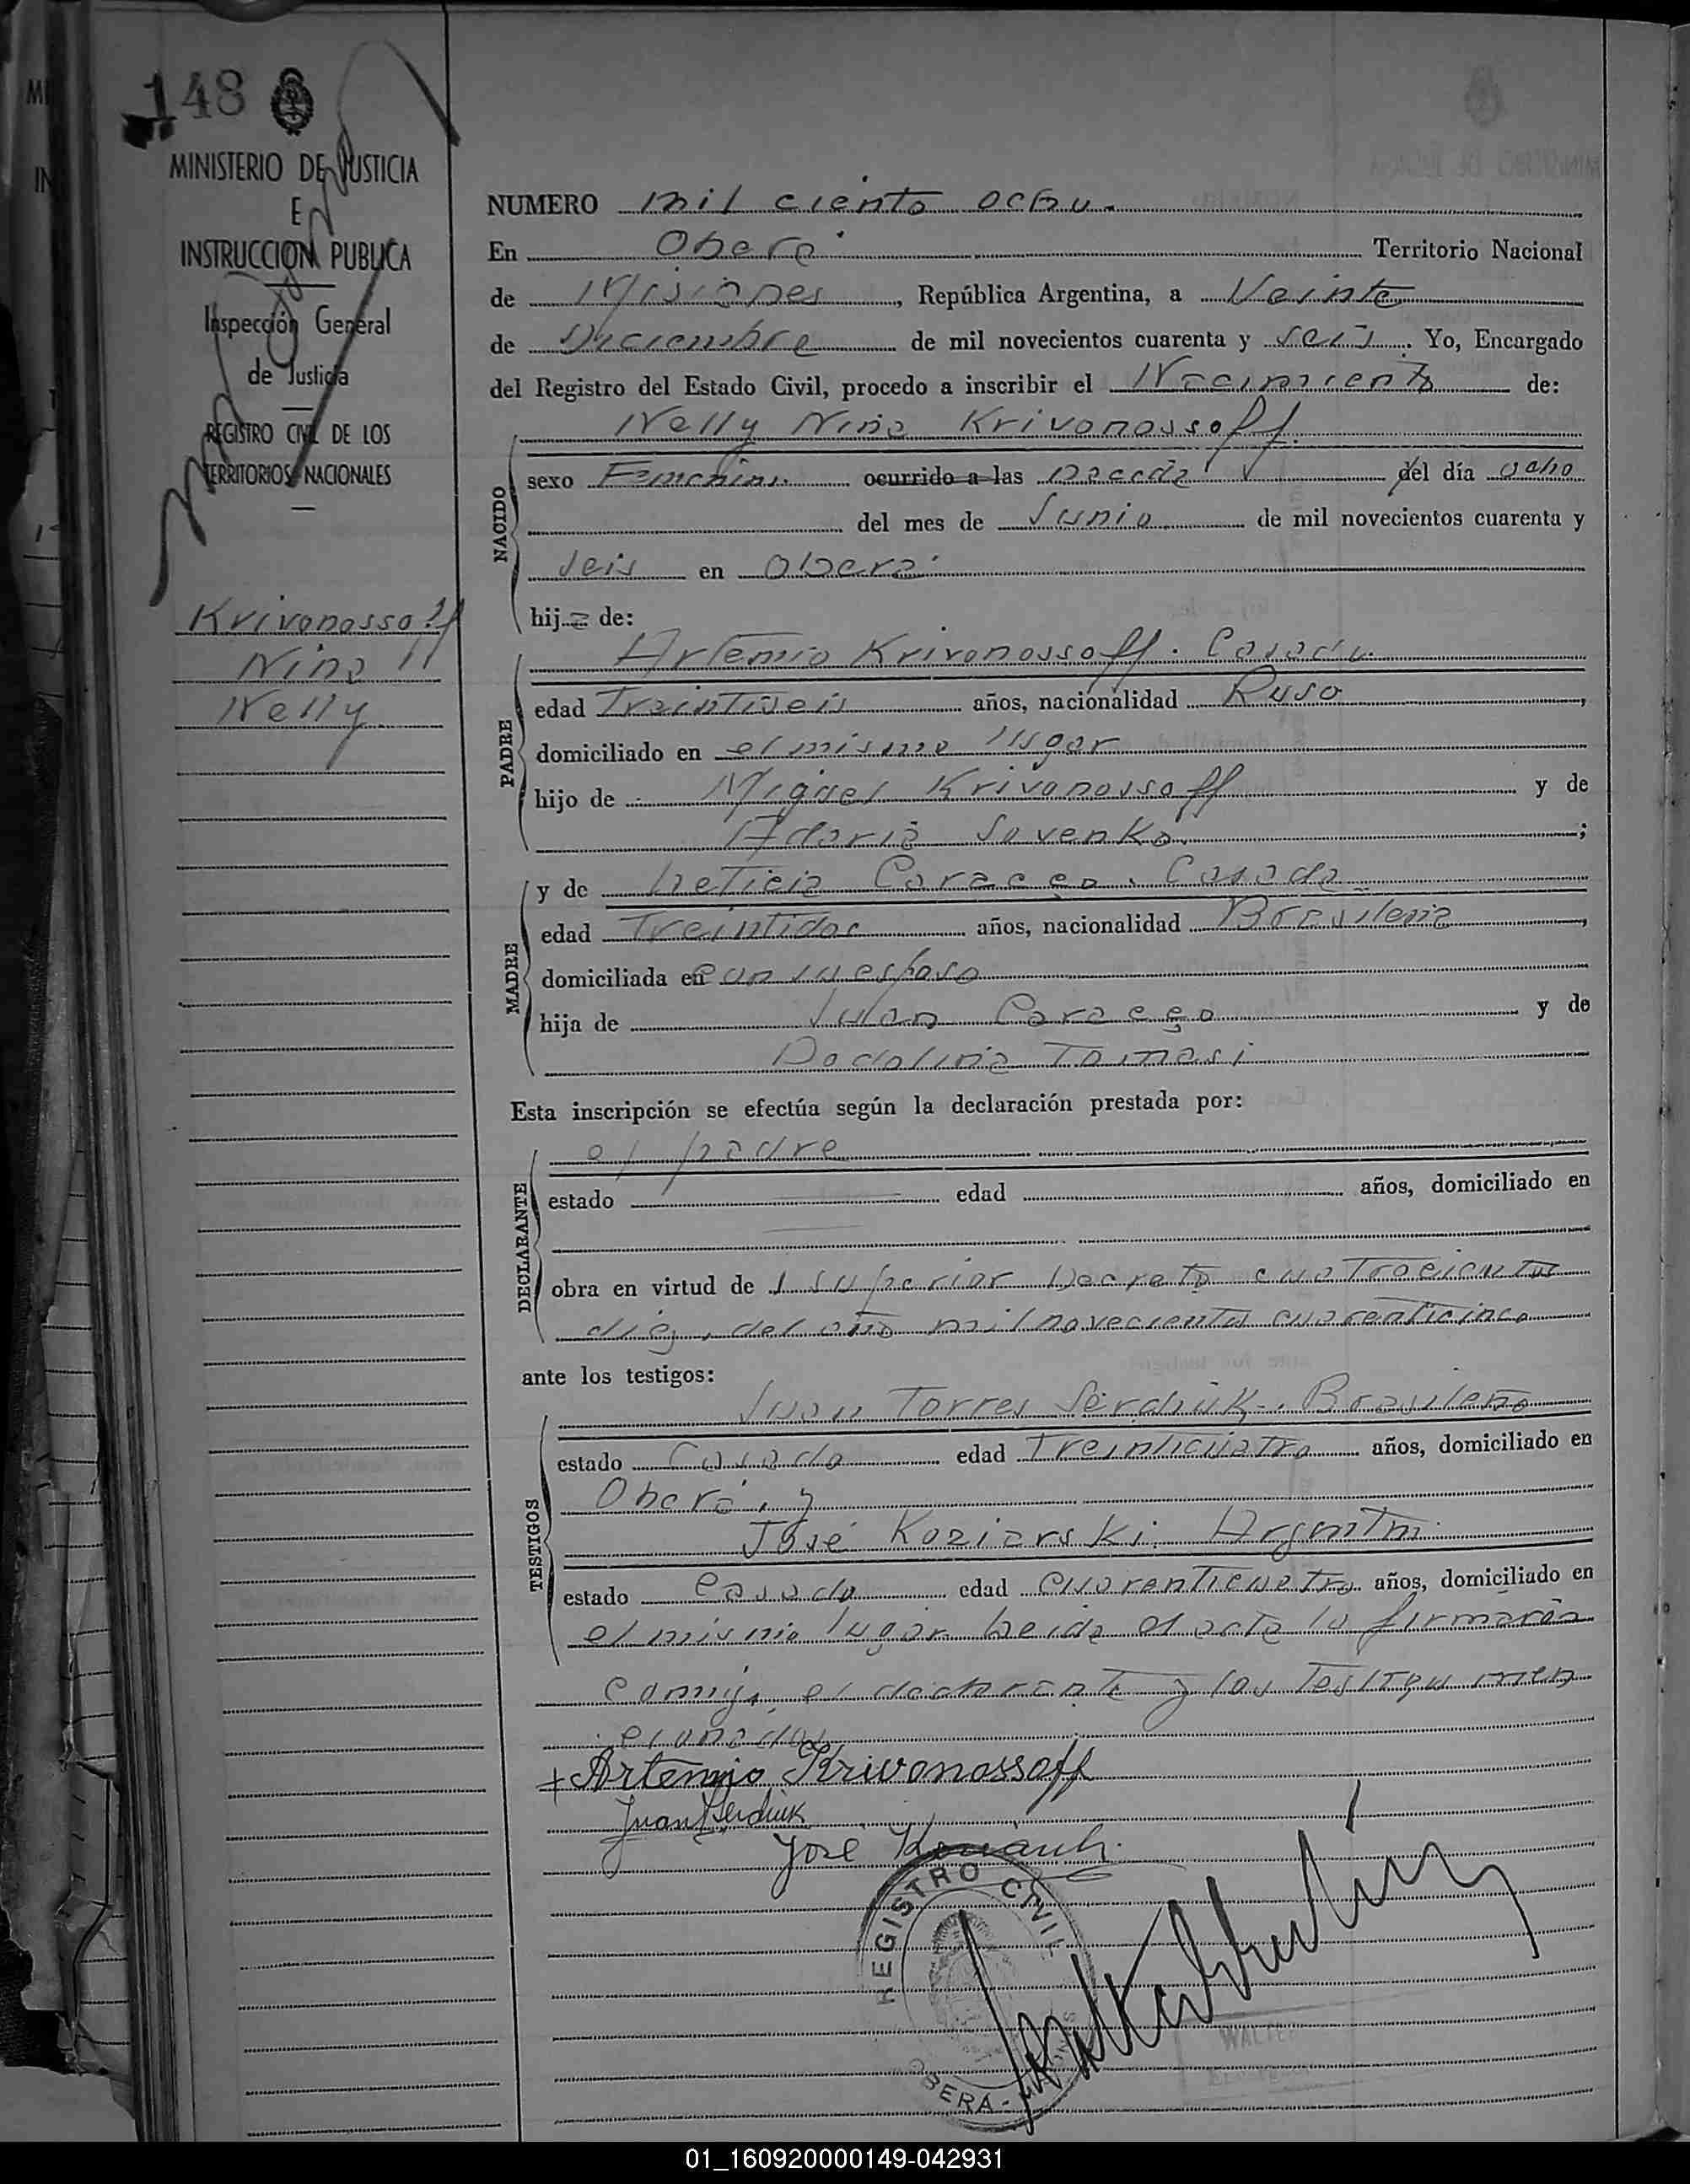 148
MINISTERIO DE JUSTICIA
E
INSTRUCCION PUBLICA
Inspección General
de Justicia
REGISTRO CIVIL DE LOS
TERRITORIOS NACIONALES
Krivonossoff
Nina
Nelly
NUMERO mil ciento ocho.
En Oberá Territorio Nacional
de Misiones, República Argentina, a Veinte
de Diciembre de mil novecientos cuarenta y seis. Yo, Encargado
del Registro del Estado Civil, procedo a inscribir el Nacimiento de:
NACIDO
Nelly Nina Krivonossoff.
sexo Femenino. ocurrido a las nacida del día ocho
del mes de Junio de mil novecientos cuarenta y
seis en Oberá.
hija de:
PADRE
Artemio Krivonossoff. Casado.
edad Treintiseis años, nacionalidad Ruso,
domiciliado en el mismo lugar
hijo de Miguel Krivonossoff y de
Savenko.;
MADRE
y de Leticia Casada
edad Treintidos años, nacionalidad Brasileña,
domiciliada en con su esposo
hija de y de
Tomasi
Esta inscripción se efectúa según la declaración prestada por:
DECLARANTE
el padre
estado edad años, domiciliado en
obra en virtud de Superior Decreto cuatrocientos
diez, del año mil novecientos cuarenticinco
ante los testigos:
TESTIGOS
Juan Torres Serdiuk. Brasileño
estado Casado edad Treinticuatro años, domiciliado en
Oberá, y
José Koziarski. Argentino
estado casado edad cuarenticuatro años, domiciliado en
el mismo lugar. Leida el acta la firmarón
conmigo el declarante y los testigos men
cionados
Artemio Krivonossoff
Juan Serdiuk
José
REGISTRO CIVIL
OBERA -
WALTER
Encargado
01_160920000149-042931